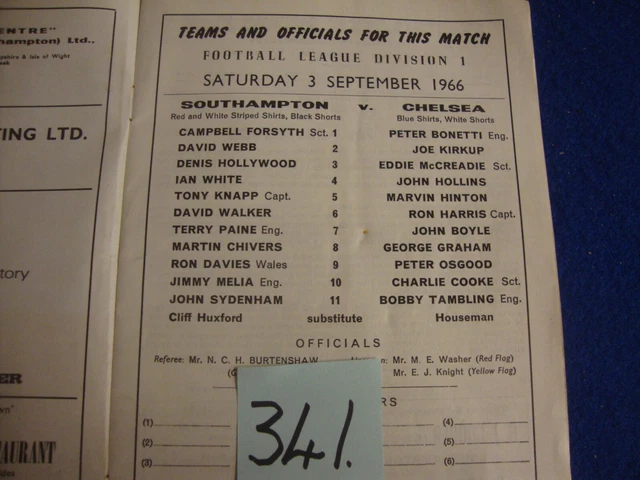 ENTRE"
hampton) Ltd.,
pshire & Isle of Wight
TING LTD.
tory
ER
own'
TAURANT
TEAMS AND OFFICIALS FOR THIS MATCH
FOOTBALL LEAGUE DIVISION 1
SATURDAY 3 SEPTEMBER 1966
SOUTHAMPTON v. CHELSEA
Red and White Striped Shirts, Black Shorts Blue Shirts, White Shorts
CAMPBELL FORSYTH Sct. 1 PETER BONETTI Eng.
DAVID WEBB 2 JOE KIRKUP
DENIS HOLLYWOOD 3 EDDIE McCREADIE Sct.
IAN WHITE 4 JOHN HOLLINS
TONY KNAPP Capt. 5 MARVIN HINTON
DAVID WALKER 6 RON HARRIS Capt.
TERRY PAINE Eng. 7 JOHN BOYLE
MARTIN CHIVERS 8 GEORGE GRAHAM
RON DAVIES Wales 9 PETER OSGOOD
JIMMY MELIA Eng. 10 CHARLIE COOKE Sct.
JOHN SYDENHAM 11 BOBBY TAMBLING Eng.
Cliff Huxford substitute Houseman
OFFICIALS
Referee: Mr. N. C. H. BURTENSHAW Mr. M. E. Washer (Red Flag)
Mr. E. J. Knight (Yellow Flag)
RS
(1) (4)
(2) (5)
(3) (6)
341.